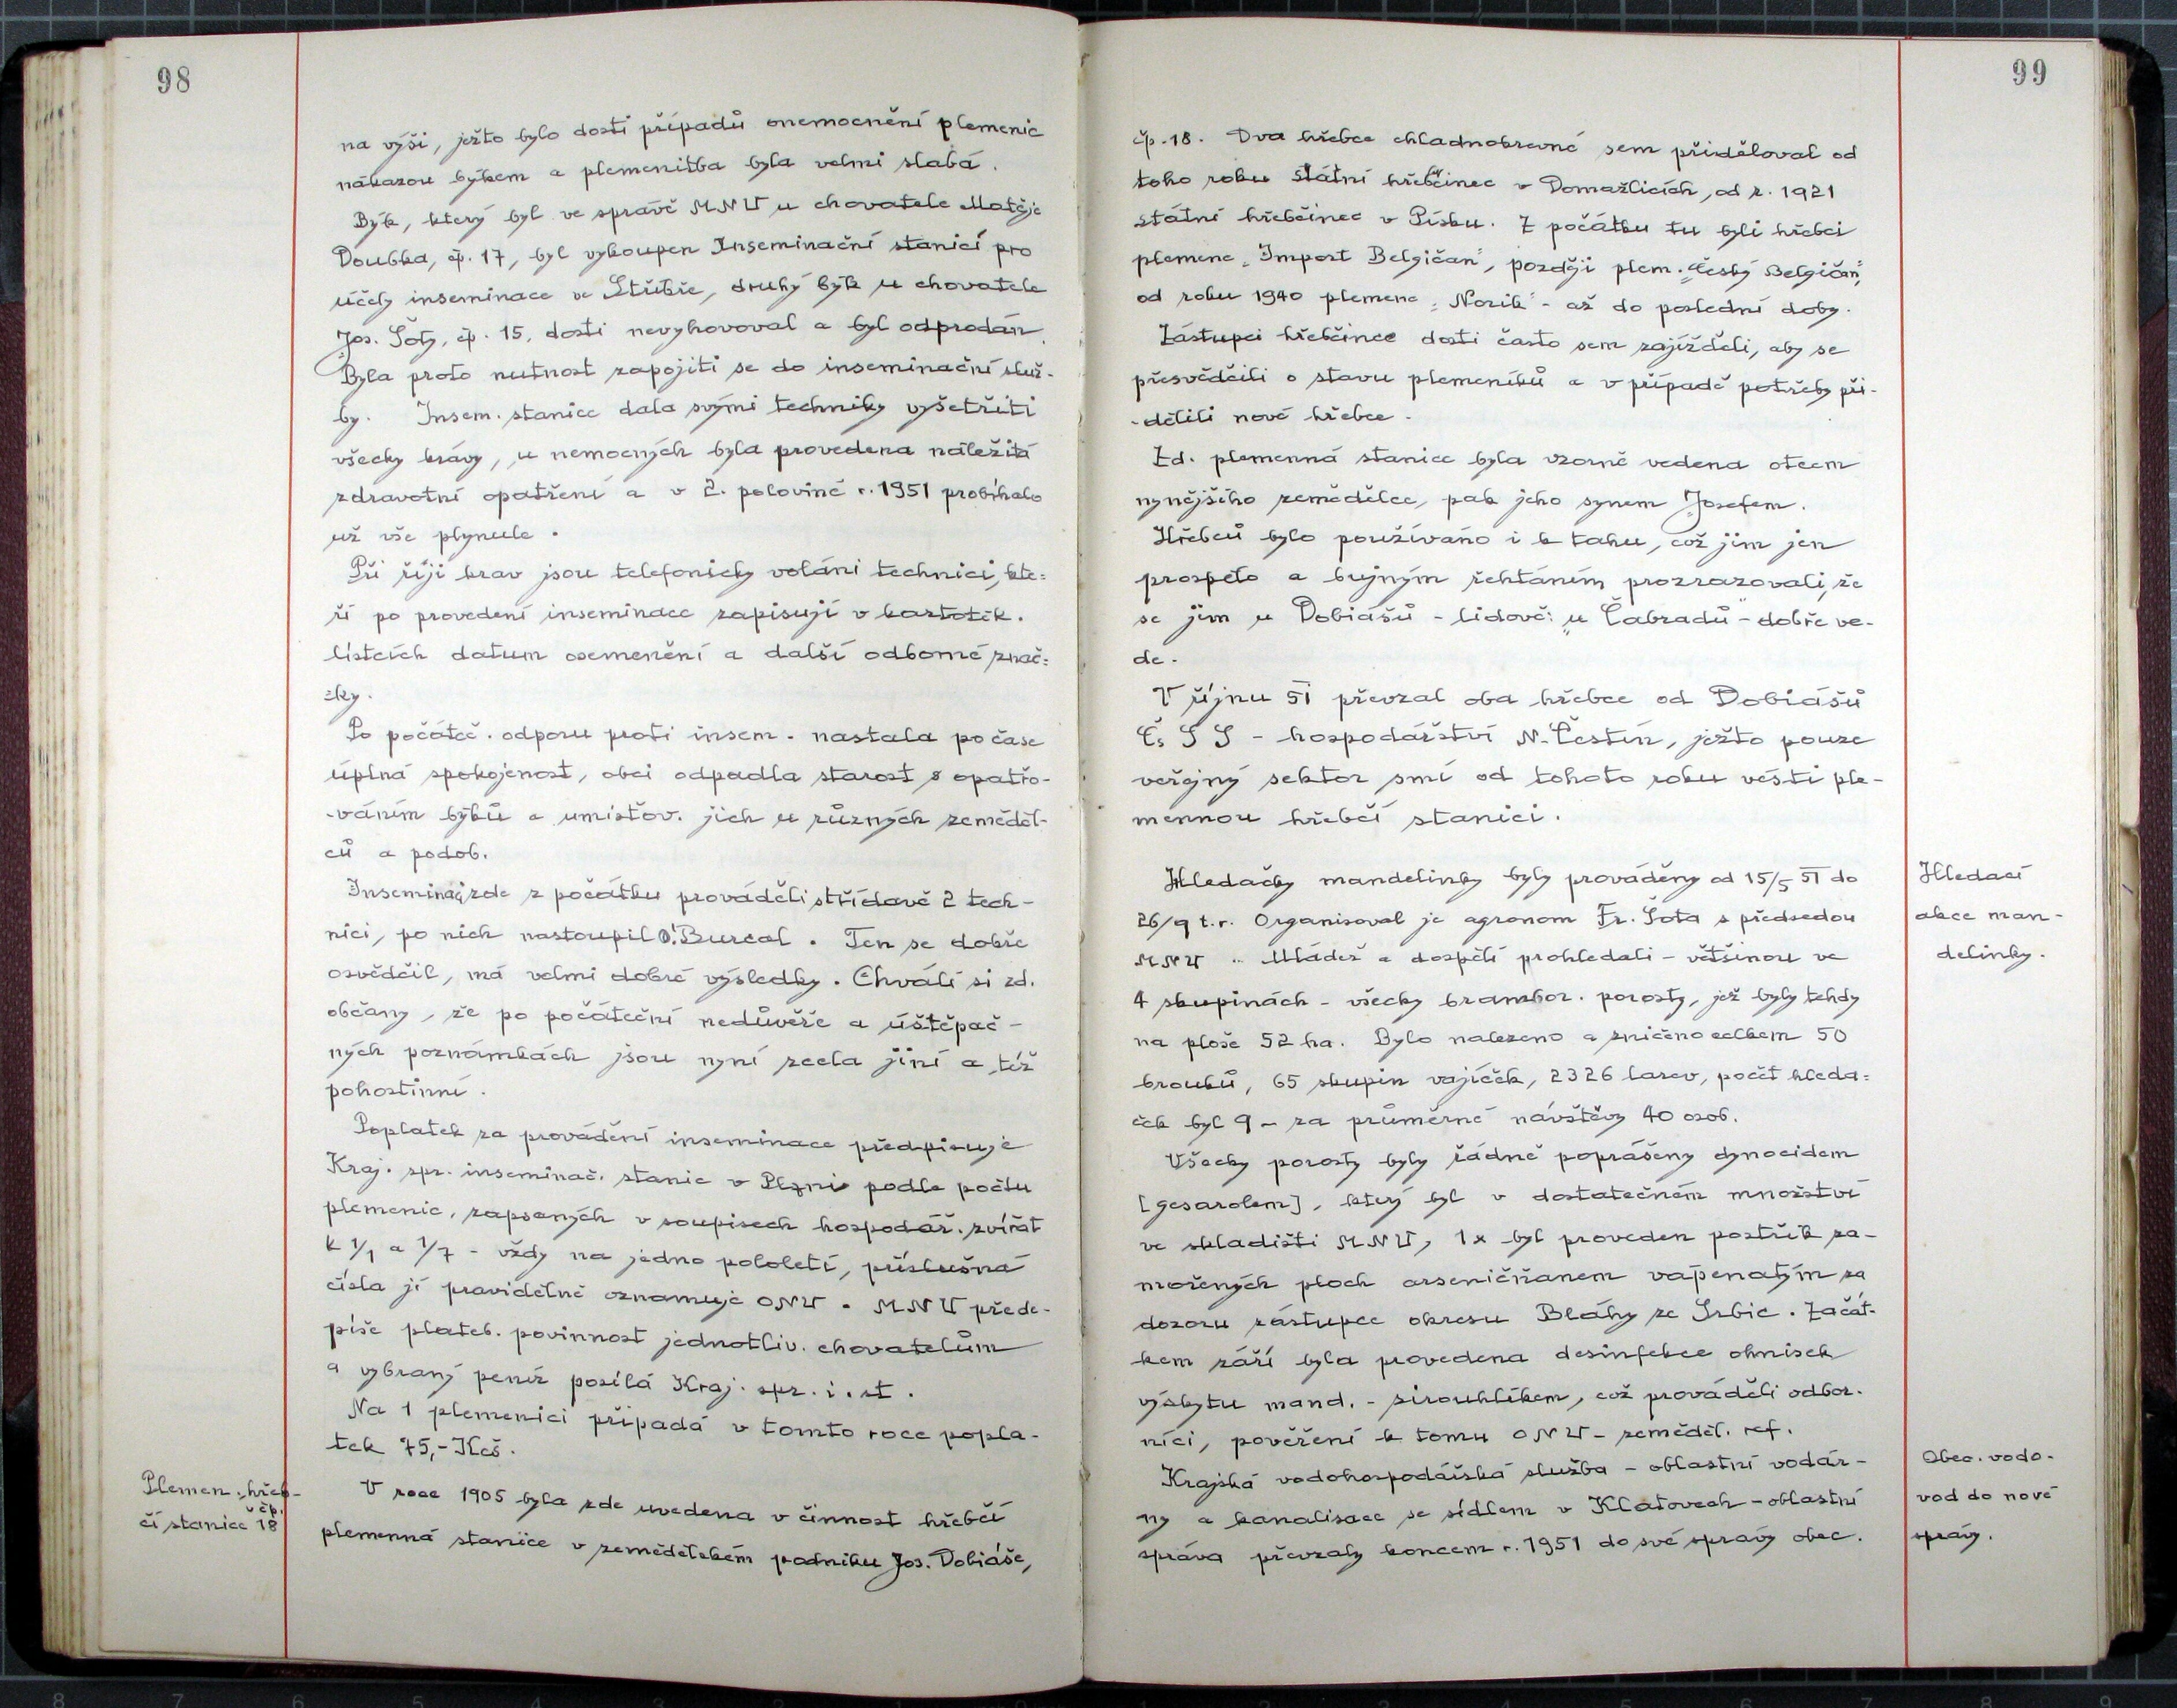 98
na výši, ježto bylo dosti případů onemocnění plemenic
nákazou býkem a plemenitba byla velmi slabá.
Býk, který byl ve správě MNV u chovatele Matěje
Doubka, čp. 17, byl vykoupen Inseminační stanicí pro
účely inseminace ve Stříbře, druhý býk u chovatele
Jos. Šoty, čp. 15, dosti nevyhovoval a byl odprodán.
Byla proto nutnost zapojiti se do inseminační služ-
by. Insem. stanice dala svými techniky vyšetřiti
všecky krávy, u nemocných byla provedena náležitá
zdravotní opatření a v 2. polovině r. 1951 probíhalo
už vše plynule.
Při říji krav jsou telefonicky voláni technici, kte=
ří po provedení inseminace zapisují v kartoték.
lístcích datum osemenění a další odborné znač=
=ky.
Po počáteč. odporu proti insem. nastala po čase
úplná spokojenost, obci odpadla starost s opatřo-
-váním býků a umístov. jich u různých zeměděl-
ců a podob.
Inseminaci zde z počátku prováděli střídavě 2 tech-
nici, po nich nastoupil O. Burcal. Ten se dobře
osvědčil, má velmi dobré výsledky. Chválí si zd.
občany, že po počáteční nedůvěře a úštěpač-
ných poznámkách jsou nyní zcela jiní a též
pohostinní.
Poplatek za provádění inseminace předpisuje
Kraj. spr. inseminač. stanic v Plzni podle počtu
plemenic, zapsaných v soupisech hospodář. zvířat
k 1/1 a 1/7 - vždy na jedno pololetí, příslušná
čísla jí pravidelně oznamuje ONV. MNV přede-
píše plateb. povinnost jednotliv. chovatelům
a vybraný peníz posílá Kraj. spr. i. st.
Na 1 plemenici připadá v tomto roce popla-
tek 75,- Kčs.
Plemen. hřeb-
čí stanice v čp. 18
V roce 1905 byla zde uvedena v činnost hřebčí
plemenná stanice v zemědělském podniku Jos. Dobiáše,
99
čp. 18. Dva hřebce chladnokrevné sem přiděloval od
toho roku státní hřebčinec v Domažlicích, od r. 1921
státní hřebčinec v Písku. Z počátku tu byli hřebci
plemene „Import Belgičan", později plem. „Český Belgičan",
od roku 1940 plemene „Norik" - až do poslední doby.
Zástupci hřebčince dosti často sem zajížděli, aby se
přesvědčili o stavu plemeníků a v případě potřeby při-
-dělili nové hřebce.
Zd. plemenná stanice byla vzorně vedena otcem
nynějšího zemědělce, pak jeho synem Josefem.
Hřebců bylo používáno i k tahu, což jim jen
prospělo a bujným řehtáním prozrazovali, že
se jim u Dobiášů - lidově: „u Čabradů" - dobře ve-
de.
V říjnu 51 převzal oba hřebce od Dobiášů
Čs S S - hospodářství N. Čestín, ježto pouze
veřejný sektor smí od tohoto roku vésti ple-
mennou hřebčí stanici.
Hledačky mandelinky byly prováděny od 15/5 51 do
26/9 t.r. Organisoval je agronom Fr. Šota s předsedou
MNV. Mládež a dospělí prohledali - většinou ve
4 skupinách - všecky brambor. porosty, jež byly tehdy
na ploše 52 ha. Bylo nalezeno a zničeno celkem 50
brouků, 65 skupin vajíček, 2326 larev, počet hleda=
ček byl 9 - za průměrné návštěvy 40 osob.
Hledací
akce man-
delinky.
Všecky porosty byly řádně poprášeny dynocidem
[gesarolem], který byl v dostatečném množství
ve skladišti MNV, 1x byl proveden postřik za-
mořených ploch arseničňanem vápenatým za
dozoru zástupce okresu Bláhy ze Srbic. Začát-
kem září byla provedena desinfekce ohnisek
výskytu mand. - sirouhlíkem, což prováděli odbor-
níci, pověření k tomu ONV - zeměděl. ref.
Krajská vodohospodářská služba - oblastní vodár-
ny a kanalisace se sídlem v Klatovech - oblastní
správa převzaly koncem r. 1951 do své správy obec.
Obec. vodo-
vod do nové
správy.